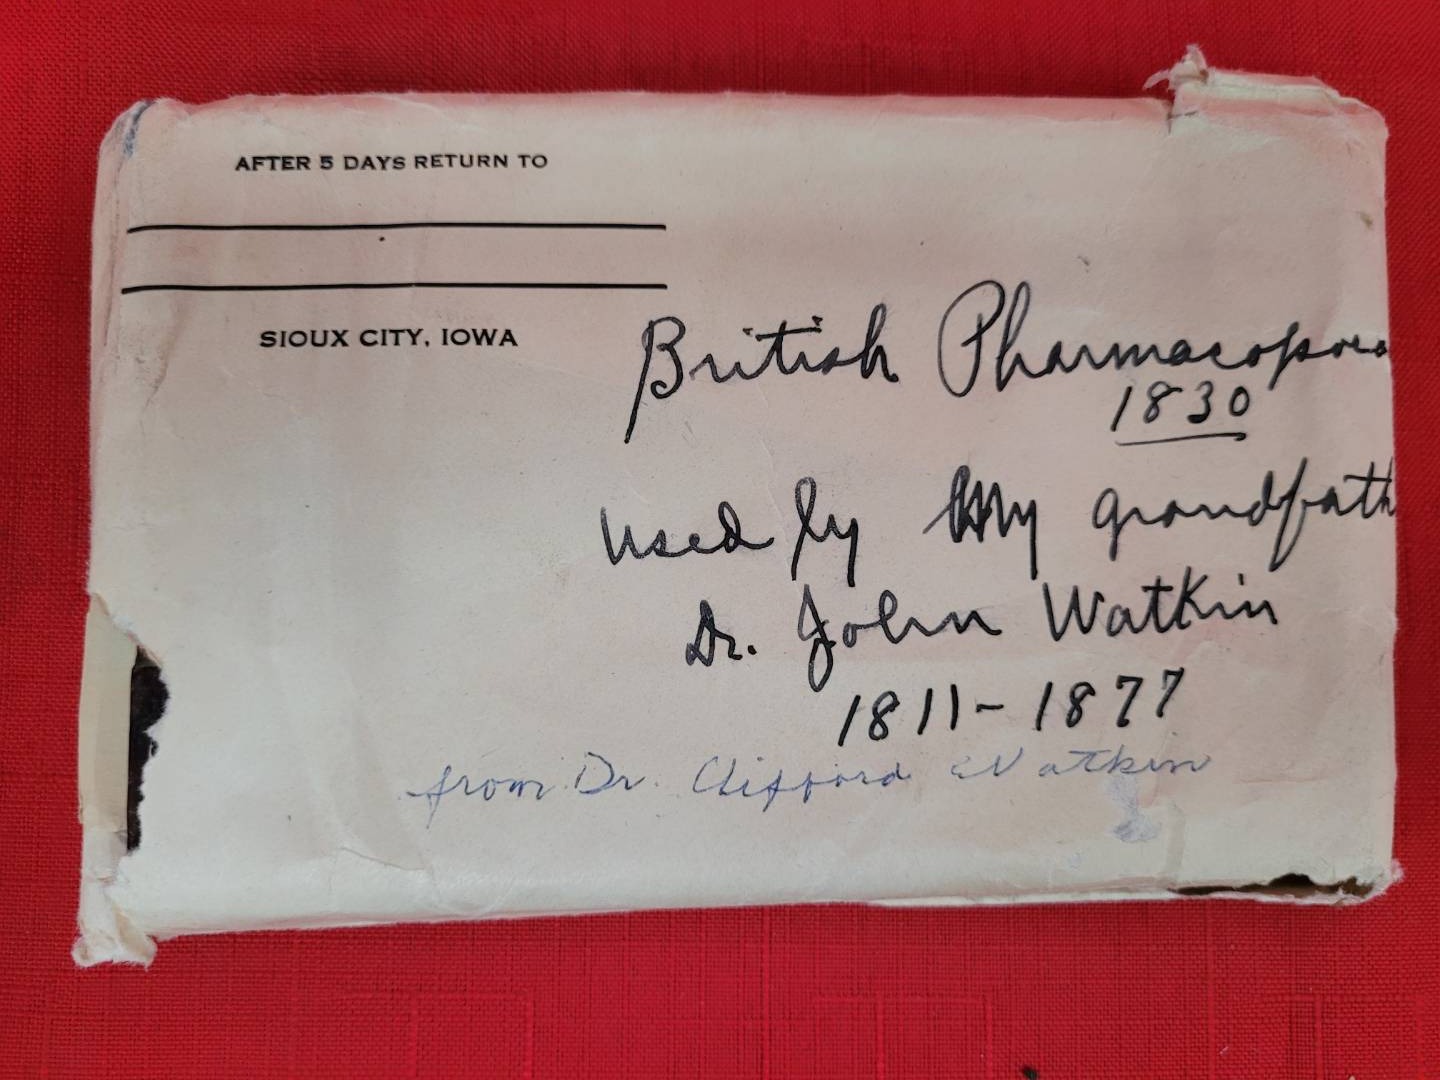 AFTER 5 DAYS RETURN TO
SIOUX CITY, IOWA
British Pharmacopoea
1830
Used by My grandfath
Dr. John Watkin
1811-1877
from Dr. Clifford Watkin